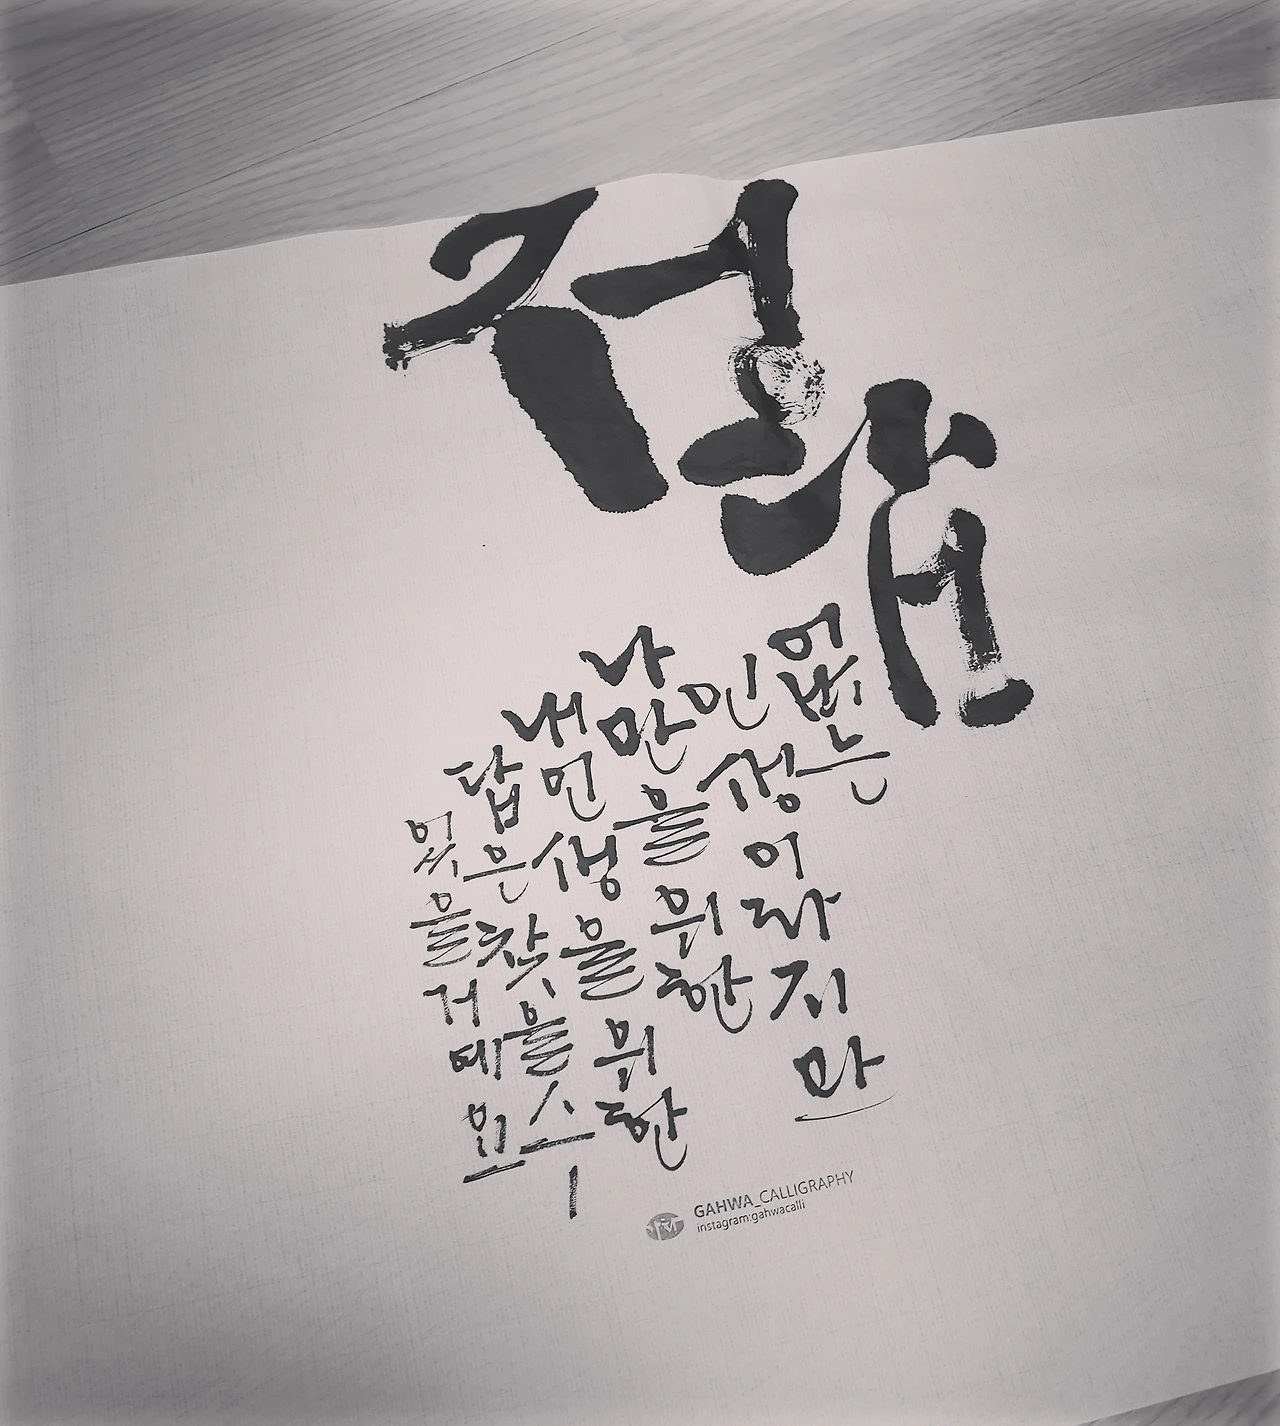 정답
없는
인생이라지만
나만을위한
내인생을위한
답은찾을수
있을거예요
GAHWA_CALLIGRAPHY
instagram:gahwacalli